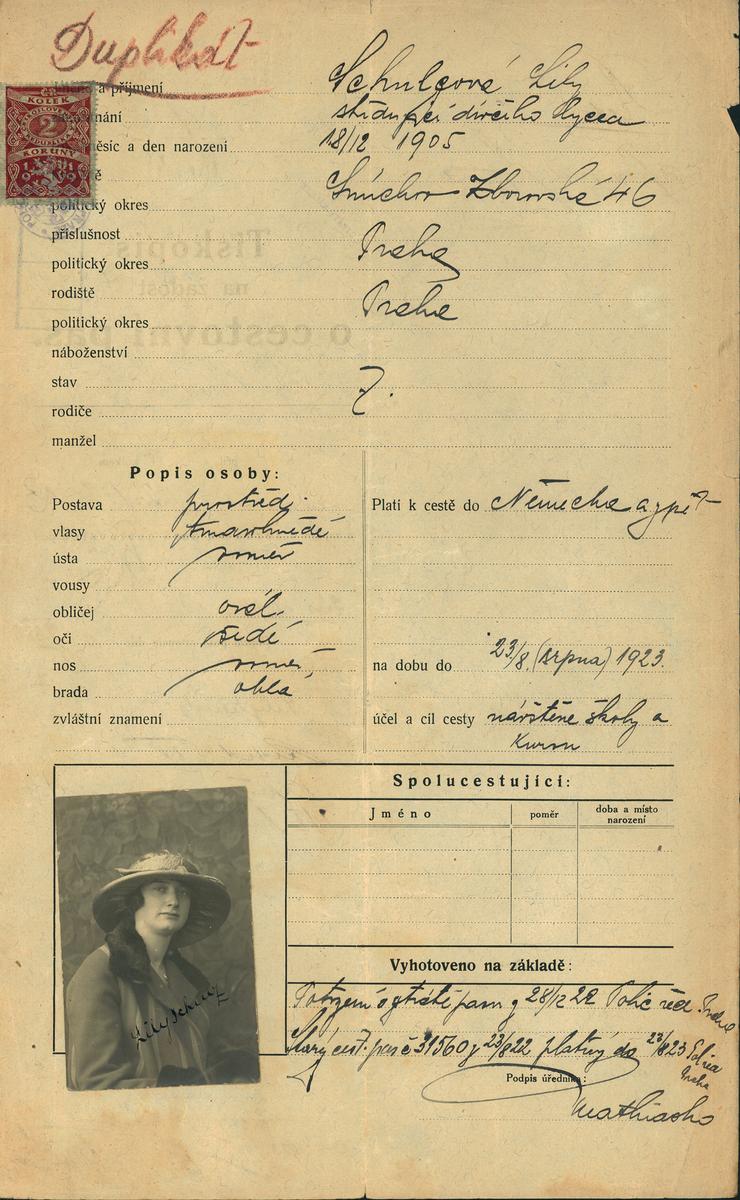 Duplikát
a příjmení Schulzové Lily
nání studující dívčího lycea
měsíc a den narození 18/12 1905
KOLEK
2
KORUNY
politický okres Smíchov Zborovská 46
příslušnost
politický okres Praha
rodiště
politický okres Praha
náboženství
stav
rodiče
manžel
Popis osoby:
Postava prostřed.
vlasy tmavohnědé
ústa souměr
vousy
obličej ovál.
oči šedé
nos souměr,
brada oblá
zvláštní znamení
Platí k cestě do Německa a zpět
na dobu do 23/8. (srpna) 1923.
účel a cíl cesty návštěva školy a
kursu
Spolucestující:
Jméno
poměr
doba a místo
narození
Vyhotoveno na základě:
Potvrzení o ztrátě pasu z 28/12 22 Polic řed. Praha
Starý cest. pas č 31560 z 23/8 22 platný do 23/8 23 Praha
Podpis úředníka:
Mathiasko
Lily Schulz